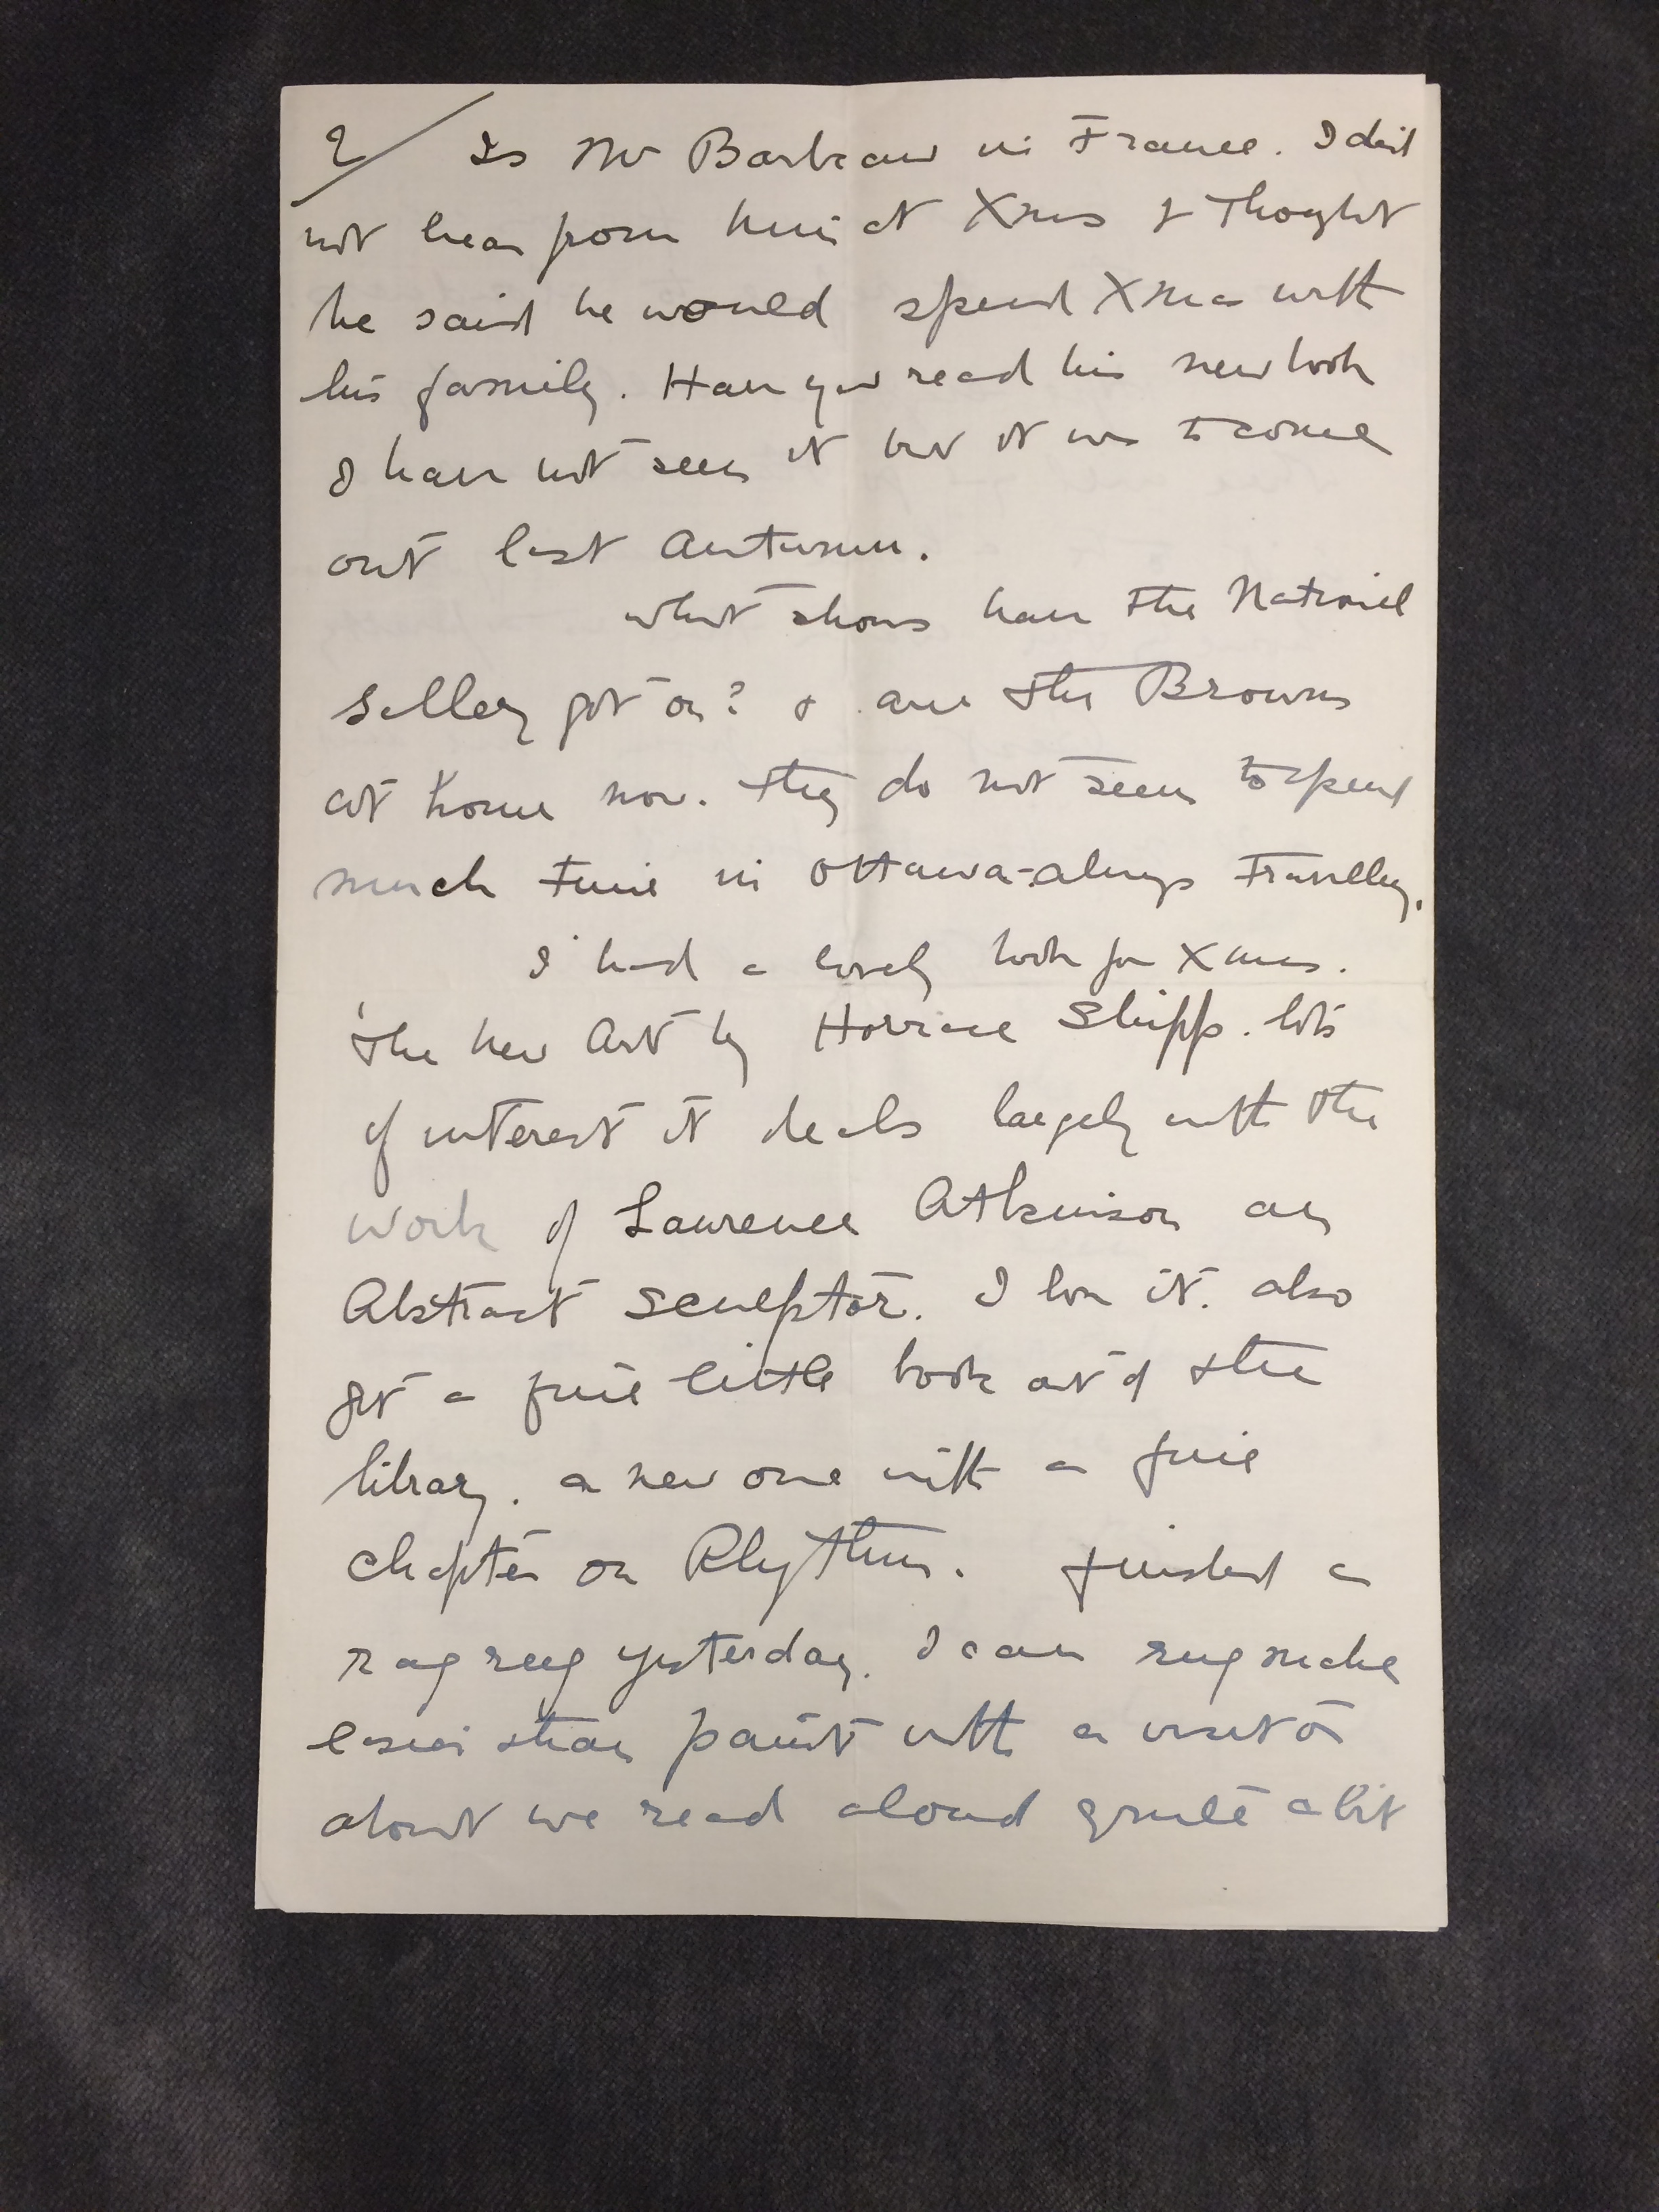 2/ Is Mr Barbeau in France. I did
not hear from him at Xmas & thoght
he said he would spend Xmas with
his family. Have you read his new book
I have not seen it but it was to come
out last Autumn.
what shows have the National
Gallery got on? & are the Browns
at home now. they do not seem to spend
much time in Ottawa-always travelling.
I had a lovely book for Xmas.
'the New Art by Horrace Shipp. lots
of interest it deals largely with the
work of Lawrence Atkinson an
Abstract sculptor. I love it. also
got a fine little book out of the
library. a new one with a fine
chapter on Rhythm. finished a
rag rug yesterday. I can rug make
easier than paint with a visitor
about we read aloud quite a bit